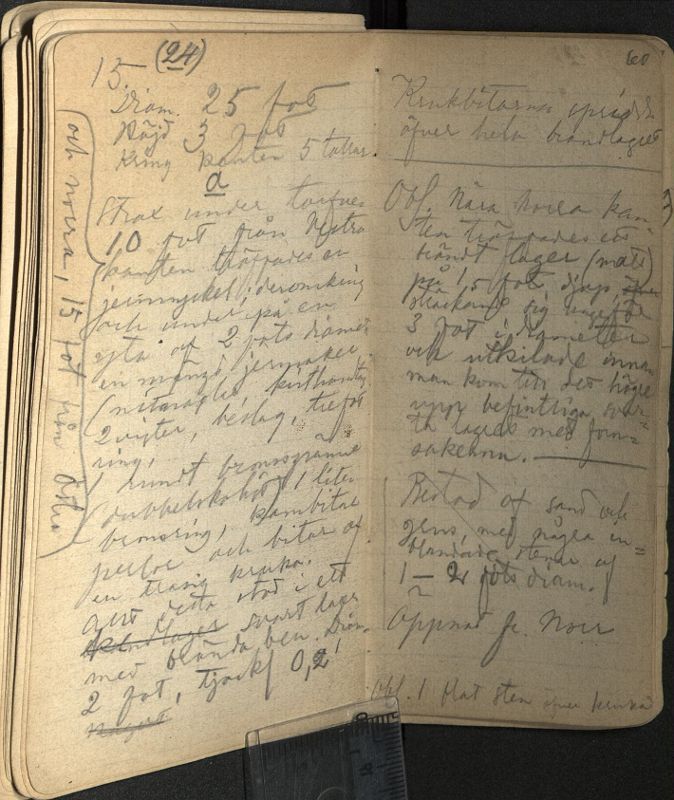 15. (24)
Diam. 25 fot
Höjd 3 fot
Kring kanten 5 tallar.
a
Strax under torfven
10 fot från Västra
kanten träffades en
jernnyckel; deromkring
och under, på en
yta af 2 fots diameter
en mängd jernsaker
2 vigter, beslag,
ring,
1 rundt bronsspänne
1 liten
bronsring, kambitar
perlor och bitar af
en trasig kruka.
Allt detta stod i ett
svart lager
med brända ben. Diam.
2 fot, tjockl 0,2'
och norra, 15 fot från Östra
60
Krukbitarna spridda
öfver hela brandlagret
Obs. Nära norra kan-
ten träffades ett
brändt lager (matt)
på 1,5 fots djup,
sträckande sig ungefär
3 fot i diameter
och utkilade innan
man kom till det högre
upp befintliga svar-
ta lagret med forn-
sakerna.
Bestod af sand och
grus, med några in-
blandade stenar af
1 — 2 fots diam.
Öppnad fr. Norr
Obs. 1 flat sten öfver kruka